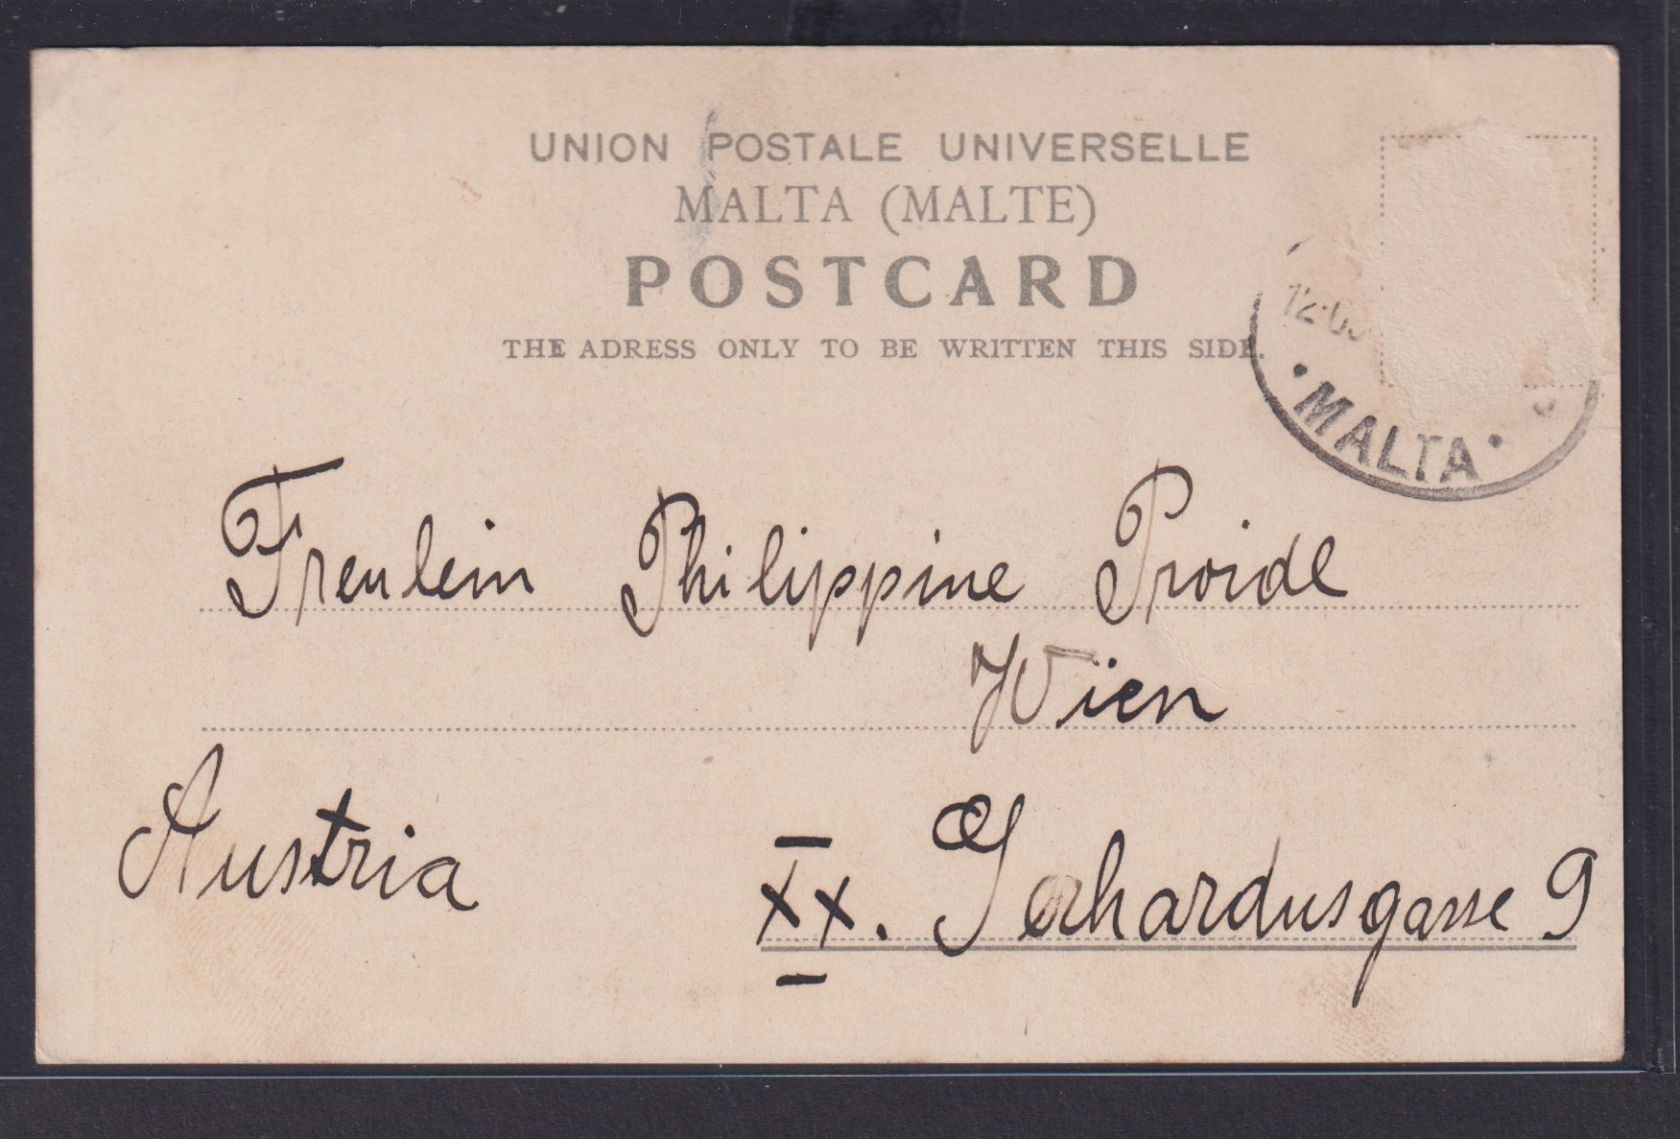 UNION POSTALE UNIVERSELLE
MALTA (MALTE)
POSTCARD
THE ADRESS ONLY TO BE WRITTEN THIS SIDE.
• MALTA •
Freulein Philippine Proidl
Wien
Austria
XX. Gerhardusgasse 9